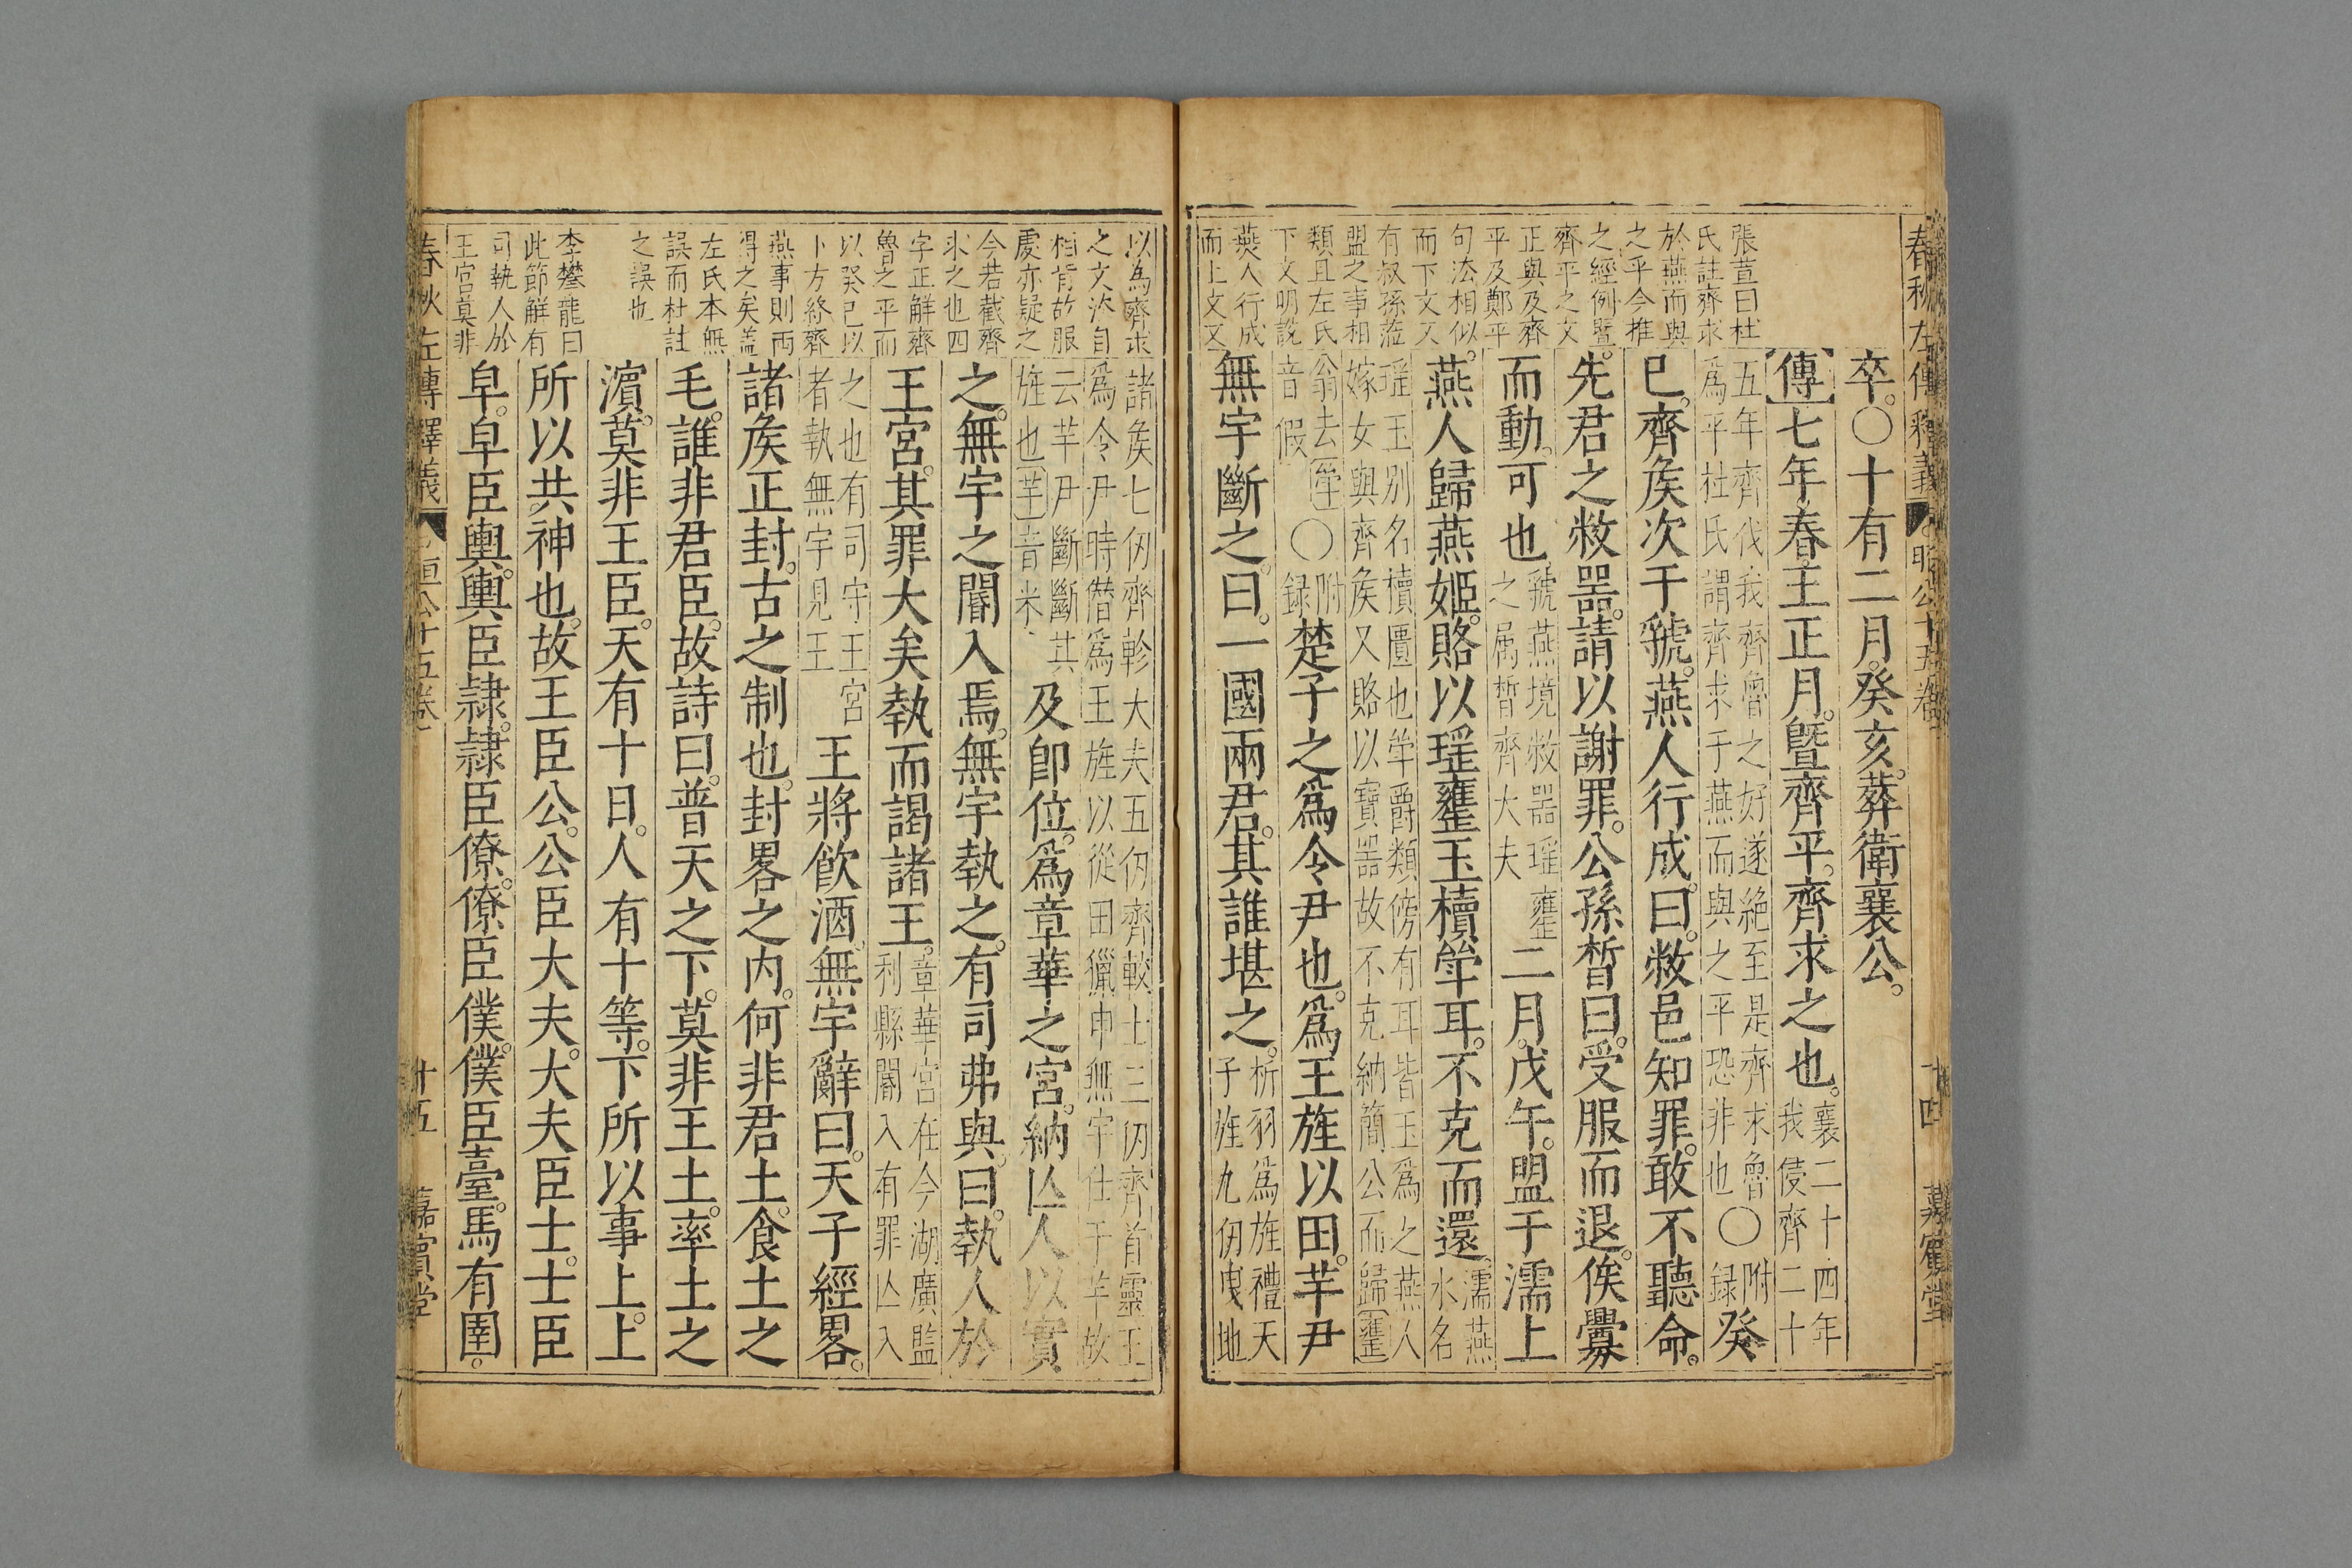 春秋左傳釋義
昭公十五卷
十四
嘉賓堂
張萱曰杜
氏註齊求
於燕而與
之平今推
之經例曁
齊平之文
正與及齊
平及鄭平
句法相似
而下文又
有叔孫蒞
盟之事相
類且左氏
下文明說
燕人行成
而上文又
卒。〇十有二月。癸亥。葬衛襄公。
傳七年春。王正月。曁齊平。齊求之也。襄二十四年
我侵齊二十
五年齊伐我齊魯之好遂絕至是齊求魯
爲平杜氏謂齊求于燕而與之平恐非也
〇附
録癸
巳。齊矦次于虢。燕人行成。曰。敝邑知罪。敢不聽命。
先君之敝噐。請以謝罪。公孫晳曰。受服而退。俟釁
而動。可也。虢燕境敝噐瑶罋
之属晳齊大夫
二月。戊午。盟于濡上。
燕人歸燕姬。賂以瑶罋玉櫝斝耳。不克而還。濡燕
水名
瑶玉别名櫝匱也斝爵類傍有耳皆玉爲之燕人
嫁女與齊矦又賂以寶噐故不克納簡公而歸罋
翁去斝
音假
〇附
録楚子之爲令尹也。爲王旌以田。芋尹
無宇斷之。曰。一國兩君。其誰堪之。析羽爲旌禮天
子旌九仞曳地
以為齊求
之文次自
相背故服
䖍亦疑之
今若截齊
求之也四
字正解齊
魯之平而
以癸巳以
卜方終齊
燕事則兩
得之矣盖
左氏本無
誤而杜註
之誤也
李攀龍曰
此節解有
司執人於
王宮莫非
諸矦七仞齊軫大夫五仞齊較士三仞齊首靈王
爲令尹時僭爲王旌以從田獵申無宇仕于芋故
云芋尹斷斷其
旌也芋音米
及卽位。爲章華之宮。納亾人以實
之。無宇之閽入焉。無宇執之。有司弗與。曰。執人於
王宮。其罪大矣執而謁諸王。章華宮在今湖廣監
利縣閽入有罪亾入
之也有司守王宮
者執無宇見王
王將飮酒。無宇辭曰。天子經畧。
諸矦正封。古之制也。封畧之内。何非君土。食土之
毛。誰非君臣。故詩曰。普天之下。莫非王土。率土之
濵。莫非王臣。天有十日。人有十等。下所以事上。上
所以共神也。故王臣公。公臣大夫。大夫臣士。士臣
皁。皁臣輿。輿臣隷。隷臣僚。僚臣僕。僕臣臺。馬有圉。
春秋左傳釋義
十五卷
十五
嘉賓堂